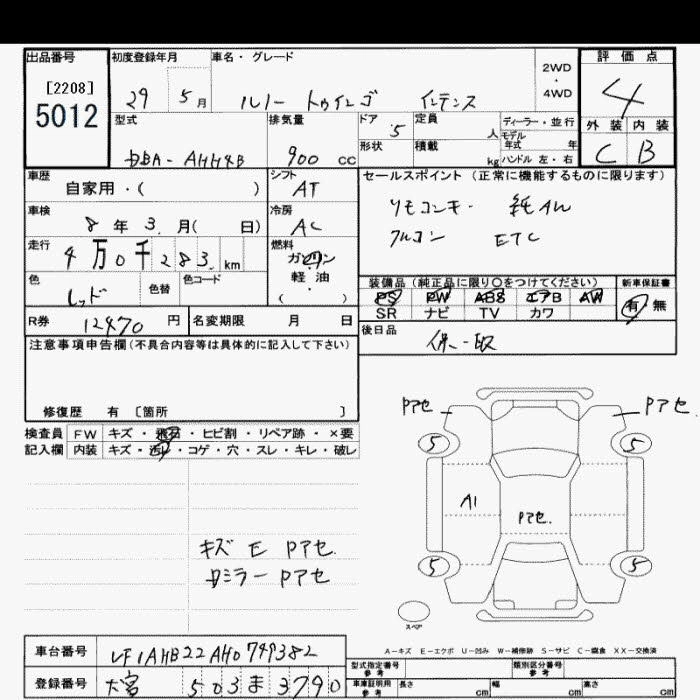 出品番号
[2208]
5012
初度登録年月
29 5月
車名・グレード
ルノー トゥインゴ インテンス
2WD
・
4WD
評価点
4
外装 内装
C B
型式
DBA-AHH4B
排気量
900 cc
ドア 5
形状
定員 人
積載 kg
ディーラー・並行
モデル年式 年
ハンドル 左・右
車歴
自家用・( )
シフト
AT
セールスポイント(正常に機能するものに限ります)
リモコンキー 純AW
フルコン ETC
車検
8年 3月( 日)
冷房
AC
走行
4万0千283km
燃料
ガソリン
軽油
・
( )
色
レッド
色替
色コード
装備品(純正品に限り○をつけてください)
PS PW ABS エアB AW
SR ナビ TV カワ
新車保証書
有 無
R券 12470 円
名変期限 月 日
後日品
保・取
注意事項申告欄(不具合内容等は具体的に記入して下さい)
修復歴 有 〔箇所 〕
検査員記入欄
FW キズ・飛石・ヒビ割・リペア跡・×要
内装 キズ・汚れ・コゲ・穴・スレ・キレ・破レ
キズ E Pアセ
Dミラー Pアセ
Pアセ
Pアセ
5
5
A1
Pアセ.
5
5
スペア
A-キズ E-エクボ U-凹み W-補修跡 S-サビ C-腐食 XX-交換済
車台番号 VF1AHB22AH0749382
登録番号 大宮 503 ま 3790
型式指定番号 参考
類別区分番号 参考
車庫証明用 参考
長さ cm 幅 cm 高さ cm